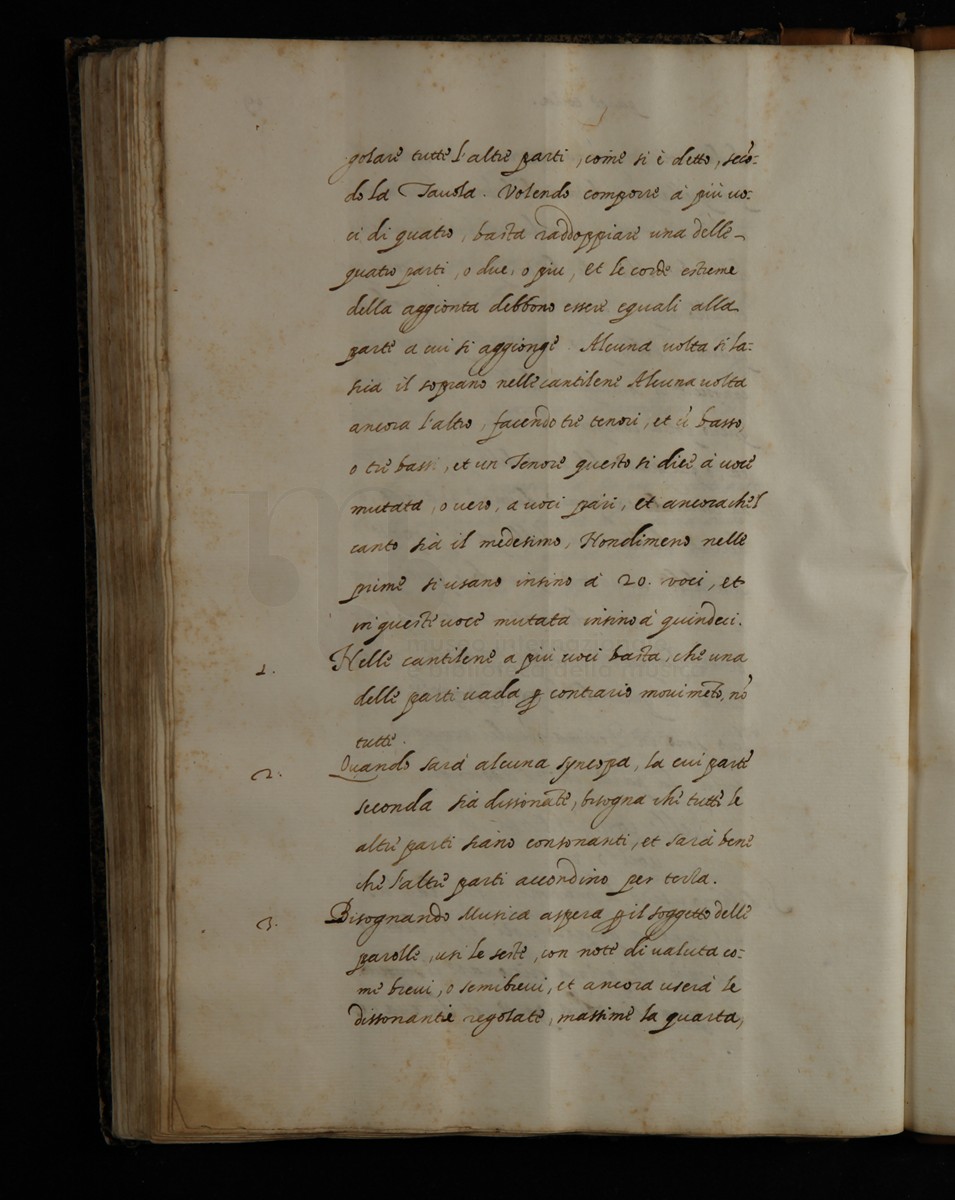 golare tutte l'altre parti, come si è detto, secō-
do la Tauola. Volendo comporre à più uo-
ci di quatro, basta raddoppiare una delle
quatro parti, o due, o piu, et le corde estreme
della aggionta debbono essere eguali alla
parte a cui si aggionge. Alcuna uolta si la-
scia il soprano nelle cantilene Alcuna uolta
ancora l'altro, facendo tre tenori, et il basso,
o tre bassi, et un Tenore questo si dice à uoce
mutata, o uero, a uoci pari, et ancora che'l
canto sia il medesimo, Nondimeno nelle
prime si usano insino à 20. uoci, et
in queste uoce mutata insino à quindeci.
1. Nelle cantilene a più uoci basta, che una
delle parti uada ꝑ contrario mouimēto, nō
tutte.
2. Quando sarà alcuna syncopa, la cui parte
seconda sia dissonāte, bisogna che tutte le
altre parti siano consonanti, et sarà bene
che l'altre parti accordino per terza.
3. Bisognando Musica aspera ꝑ il soggetto delle
parolle, usi le seste, con note di ualuta co-
me breui, o semibreui, et ancora userà le
dissonantie regolate, massime la quarta,